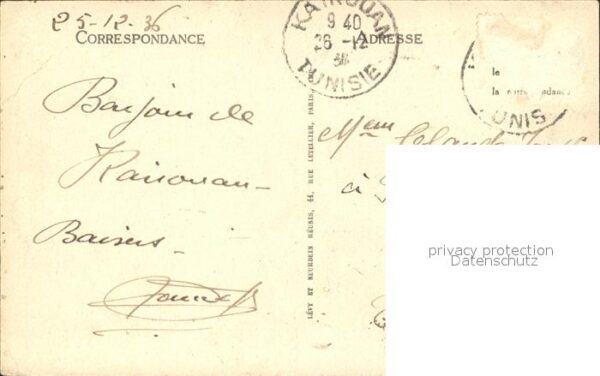 25-12-36
CORRESPONDANCE
ADRESSE
KAIROUAN
9 40
26 -12
36
TUNISIE
le
la correspondance
UNIS
Bonjour de
Kairouan
Baisers
LÉVY ET NEURDEIN RÉUNIS, 44, RUE LETELLIER, PARIS
Mme
à
privacy protection
Datenschutz